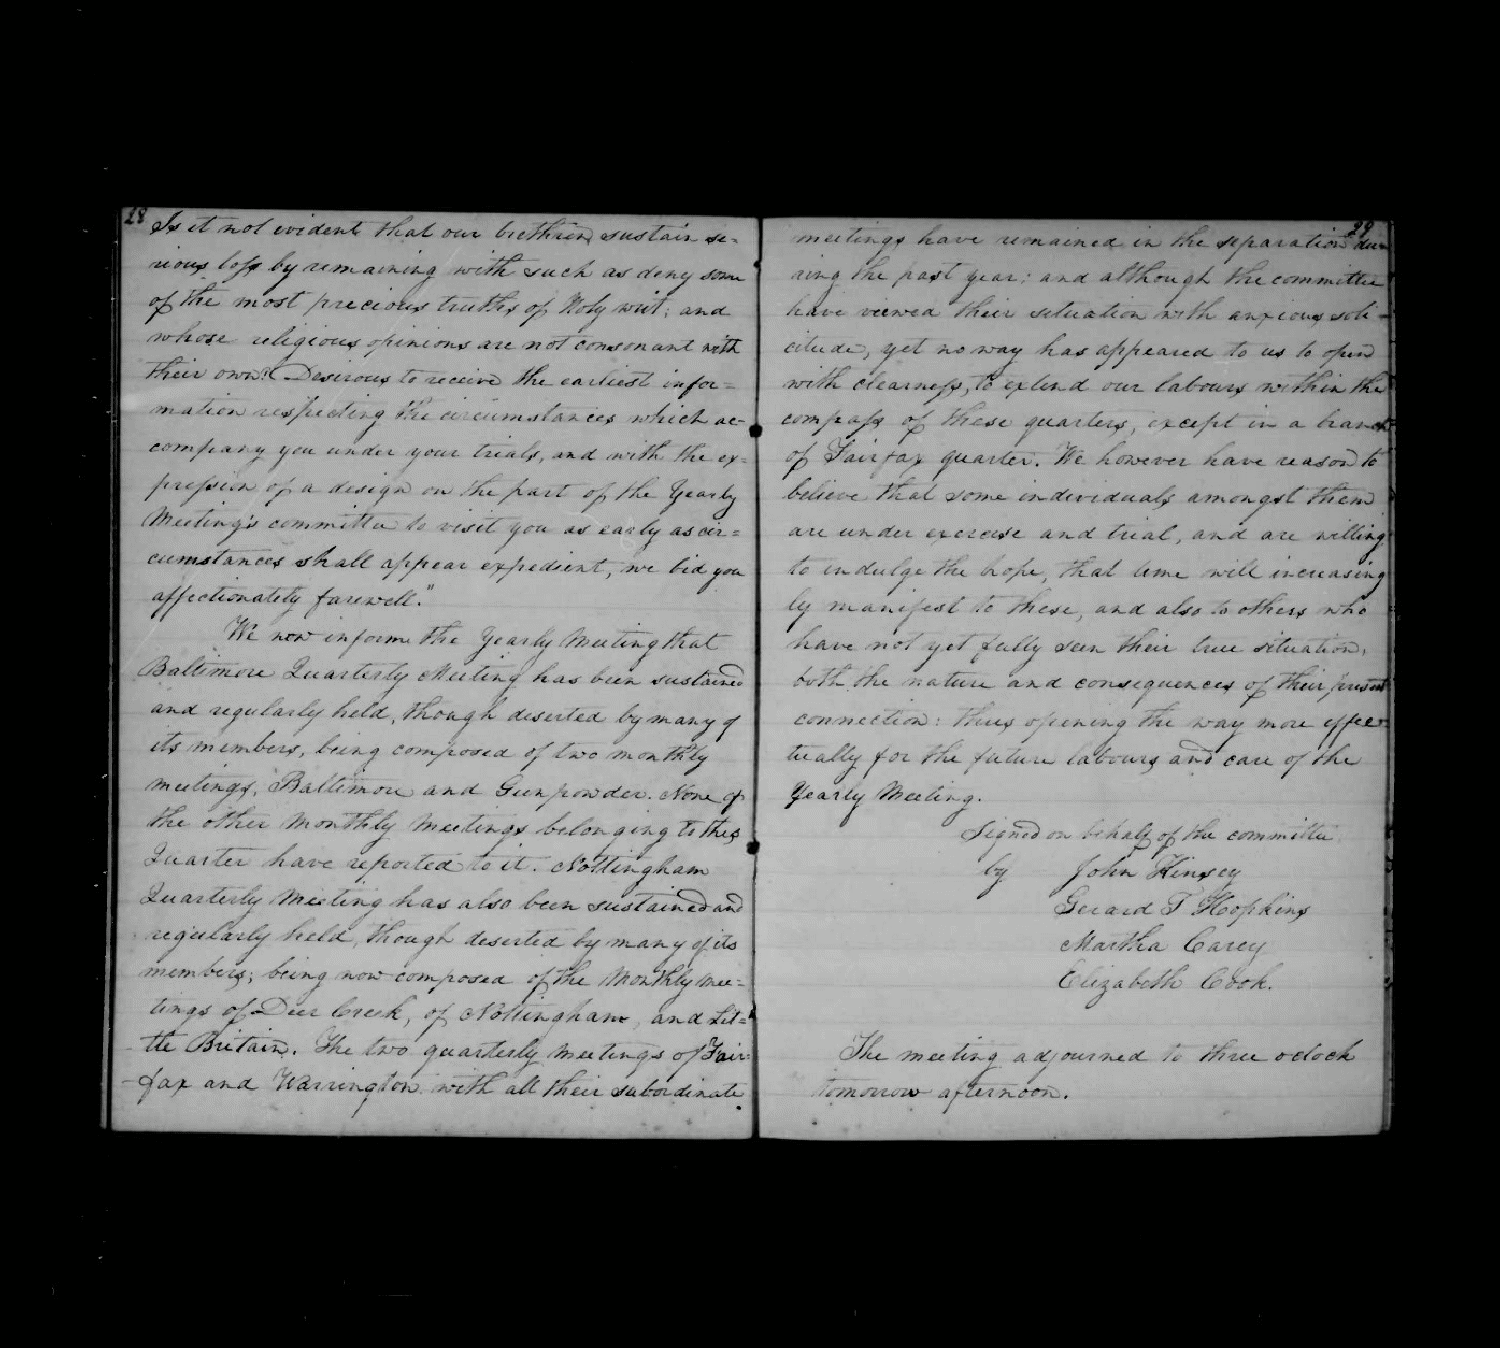 28
Is it not evident that our brethren sustain se=
rious loss by remaining with such as deny some
of the most precious truths of Holy writ; and
whose religious opinions are not consonant with
their own? Desirous to receive the earliest infor=
mation respecting the circumstances which ac-
company you under your trials, and with the ex=
pression of a design on the part of the Yearly
Meeting's committee to visit you as early as cir=
cumstances shall appear expedient, we bid you
affectionately farewell."
We now inform the Yearly Meeting that
Baltimore Quarterly Meeting has been sustained
and regularly held, though deserted by many of
its members, being composed of two monthly
meetings, Baltimore and Gunpowder. None of
the other Monthly Meetings belonging to this
Quarter have reported to it. Nottingham
Quarterly Meeting has also been sustained and
regularly held, though deserted by many of its
members; being now composed of the Monthly Mee=
tings of Deer Creek, of Nottingham, and Lit=
tle Britain. The two quarterly meetings of Fair-
fax and Warrington with all their subordinate
29
meetings have remained in the separation du=
ring the past year: and although the committee
have viewed their situation with anxious soli=
citude, yet no way has appeared to us to open
with clearness, to extend our labours within the
compass of these quarters, except in a branch
of Fairfax quarter. We however have reason to
believe that some individuals amongst them
are under exercise and trial, and are willing
to indulge the hope, that time will increasing
ly manifest to these, and also to others who
have not yet fully seen their true situation,
both the nature and consequences of their present
connection: thus opening the way more effec=
tually for the future labours and care of the
Yearly Meeting.
Signed on behalf of the committee
by John Kinsey
Gerard T Hopkins
Martha Carey
Elizabeth Cook.
The meeting adjourned to three oclock
tomorrow afternoon.